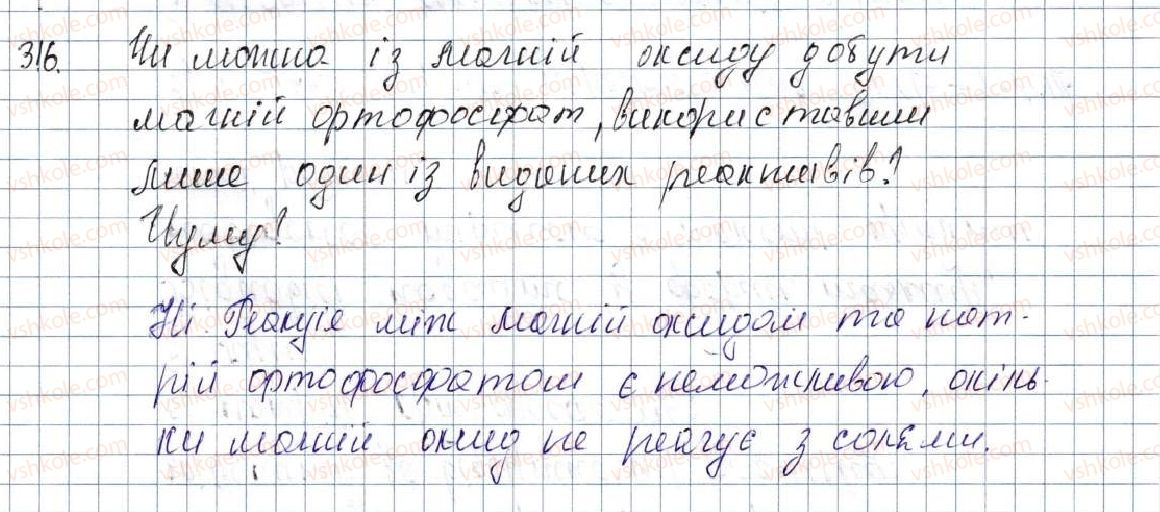 316. Чи можна із магній оксиду добути
магній ортофосфат, використавши
лише один із виданих реактивів?
Чому?
Ні. Реакція між магній оксидом та нат-
рій ортофосфатом є неможливою, оскіль-
ки магній оксид не реагує з солями.